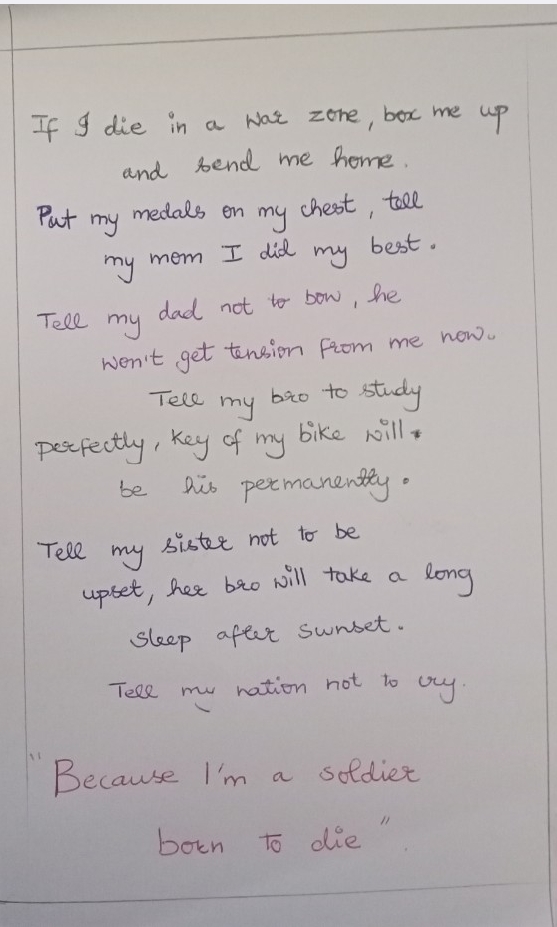 If I die in a war zone, box me up
and send me home.
Put my medals on my chest, tell
my mom I did my best.
Tell my dad not to bow, he
won't get tension from me now.
Tell my bro to study
perfectly, key of my bike will
be his permanently.
Tell my sister not to be
upset, her bro will take a long
sleep after sunset.
Tell my nation not to cry.
"Because I'm a soldier
born to die".